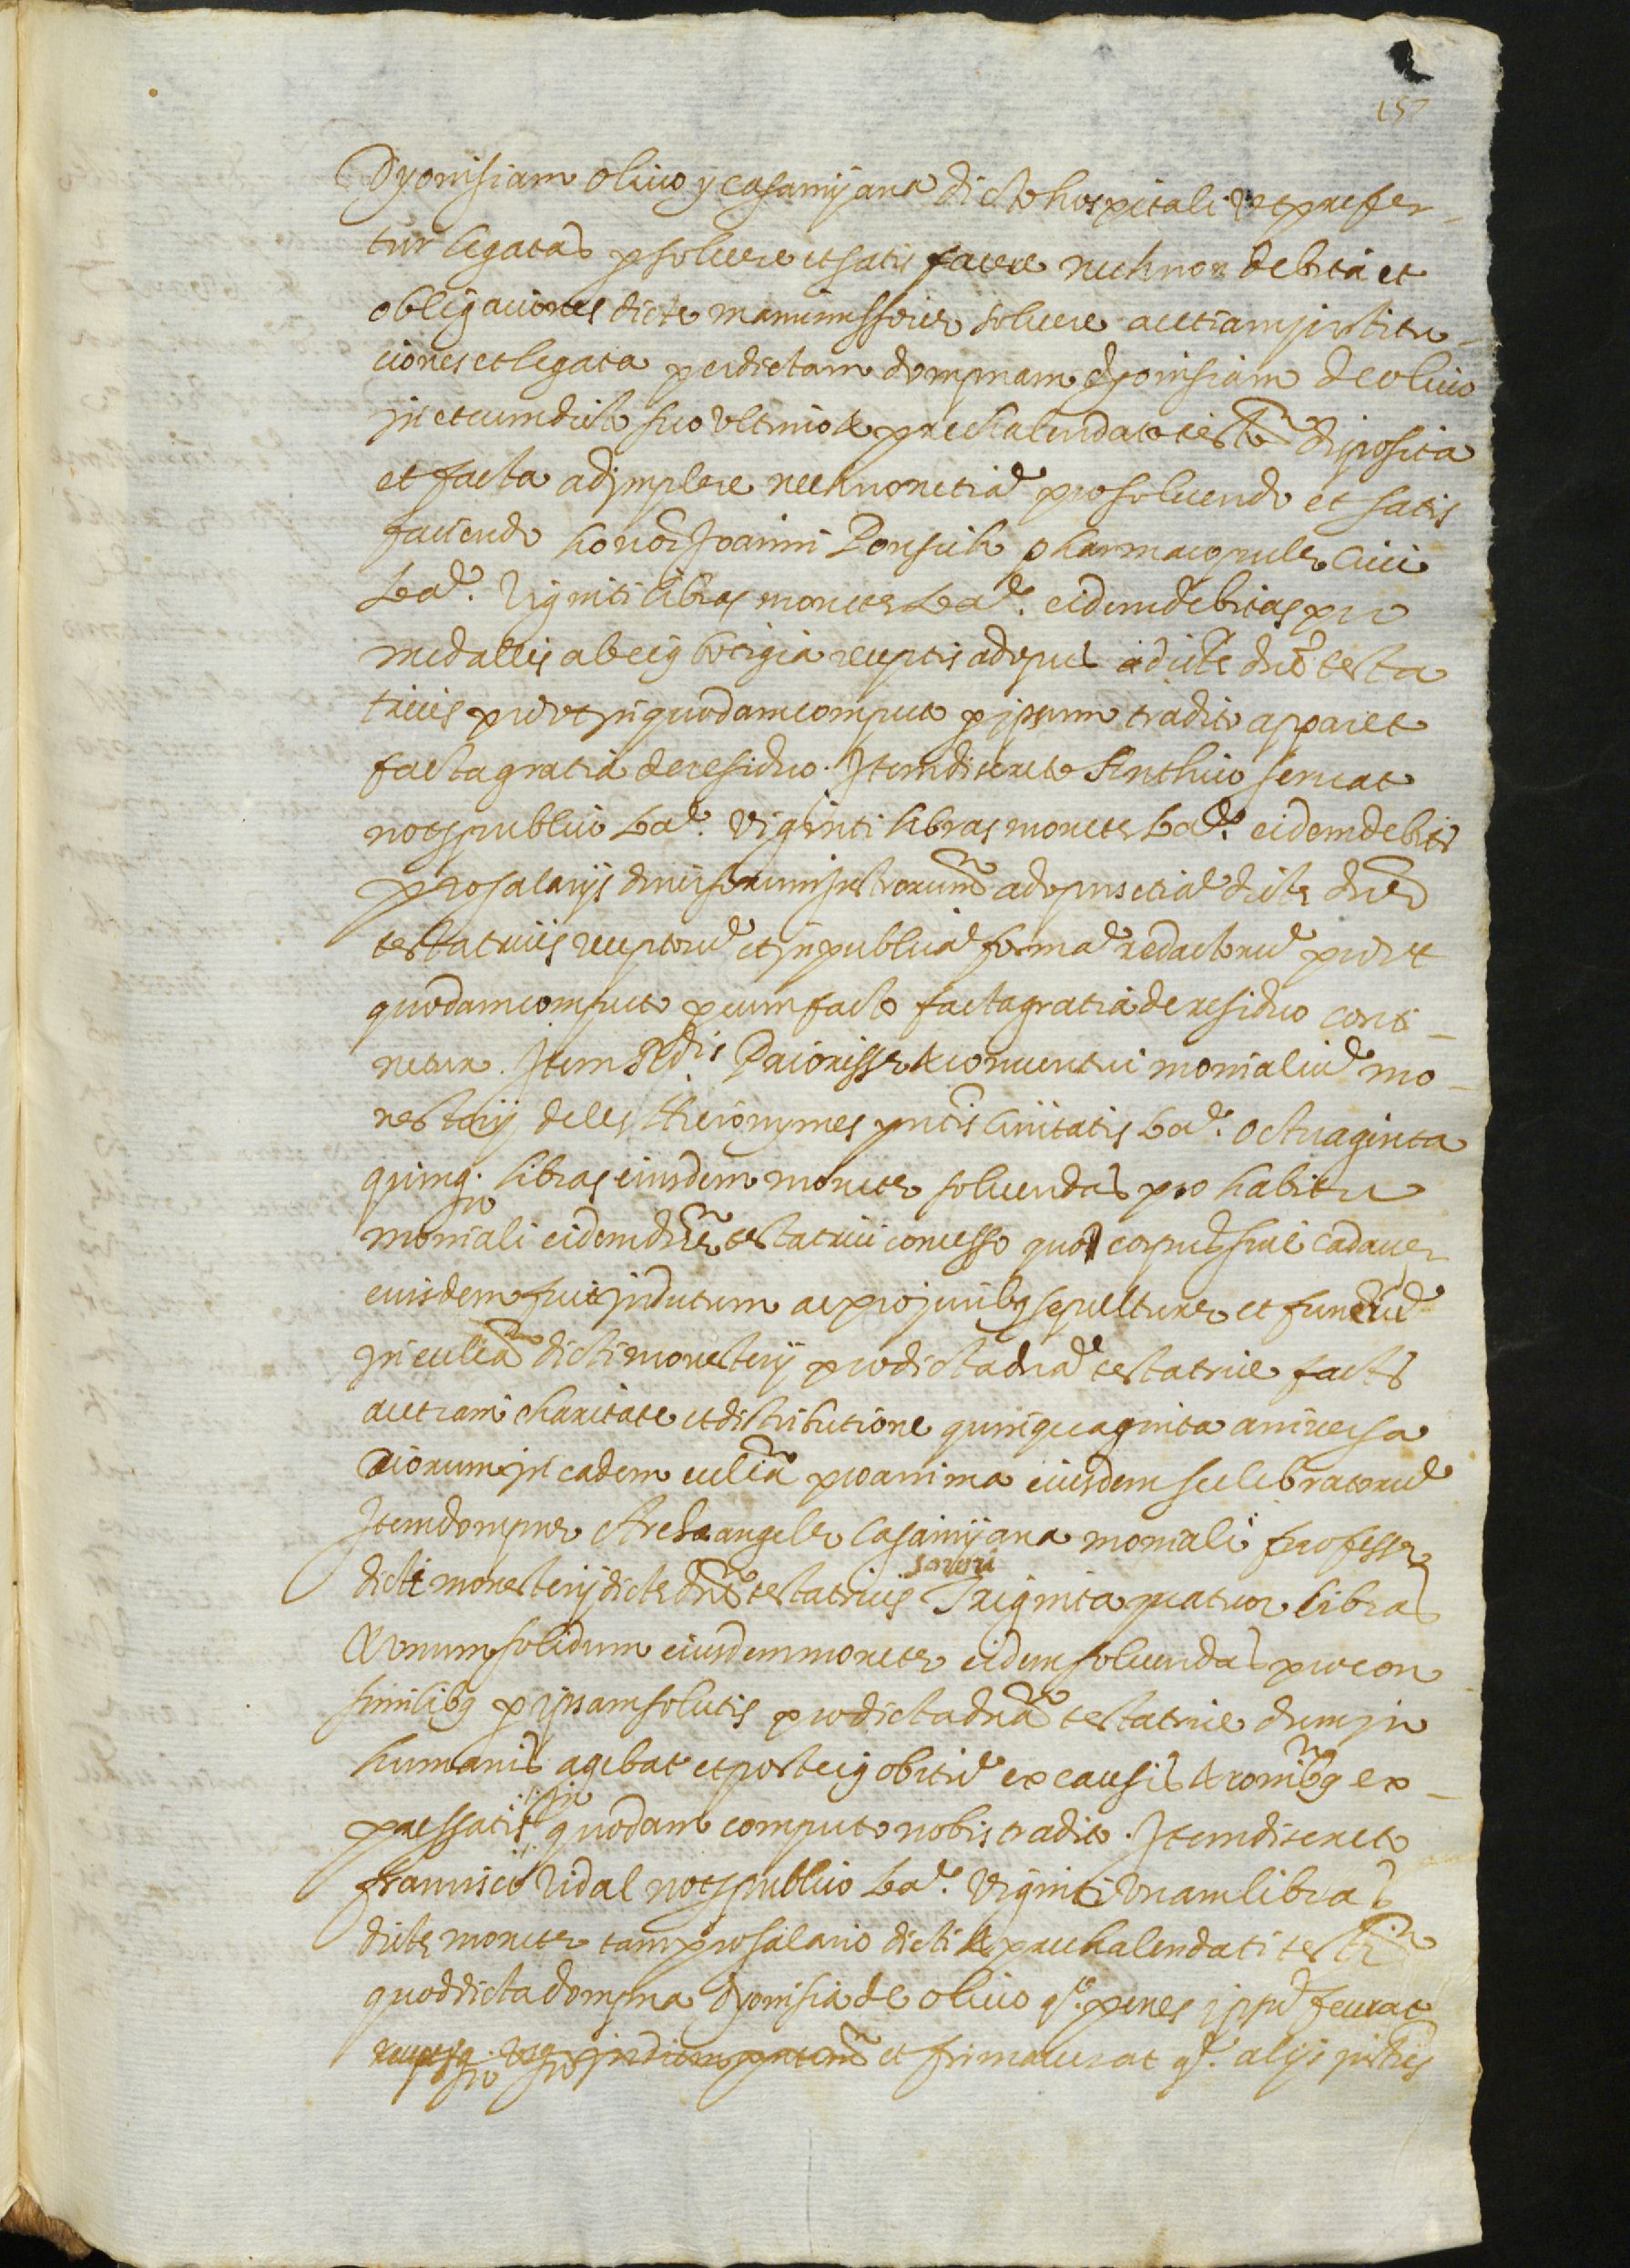 157
Dyonisiam Olivo y casamijana dicto hospitali ut prefer-
tur legatas psolvere et satis facere necknon debita et
obligaciones dicte manumissorie solvere ac etiam institu-
ciones et legata per dictam dompnam dyonisiam de olivo
in et cum dicto suo ultimo & prechalendato testo disposita
et facta adimplere necknon etia prosolvendo et satis
faciendo honor. Joanni Ponsich pharmacopule civi
Bar. Viginti libras monete Bar. eidem debitas pro
medallis ab eiq botigia receptis ad opus dicte dne testa
tricis prout in quodam computo p ipsum tradito apparet
facta gratia de residuo. Item discreto Sinthio servat
nots publico Bar. viginti libras monete Bar. eidem debits
pro salarijs diversorum instrorum ad opus etia dicte dne
testatricis receptoru et in publica forma redactoru prout
quodam computo p eum facto facta gratia de residuo conti-
netur. Item Rdis. Priorisse & conventui monialiu mo-
nestarij de les Hieronymes pntis civitatis Bar. octuaginta
quinq. libras eiusdem monete solvendas pro habitu
moniali eidem dne testatrici concesso quo corpus sive cadaver
eiusdem fuit indutum ac pro juribq sepulture et funeriu
in ecclia dicti monesterij pro dicta dna testatrice factis
ac etiam charitate et distributione quinquaginta aniversa
riorum in eadem ecclia pro anima eiusdem scelebratoru
Item dompne Archangele Casamijana moniali professe
sorori
dicti monesterij dicte dne testatricis Triginta quatuor libras
& unum solidum eiusdem monete eidem solvendas pro con
similibq p ipsam solutis pro dicta dna testatrice dum in
humanis agebat et post eiq obitu ex causis & ronibq ex-
in
pressatis quodam computo nobis tradito. Item discreto
francisco Vidal nots publico Bar. viginti unam libras
dicte monete tam pro salario dicti & prechalendati testi
quod dicta dompna dyonisia de olivo q. penes ipsu fecerat
et firmaverat q. alijs instris